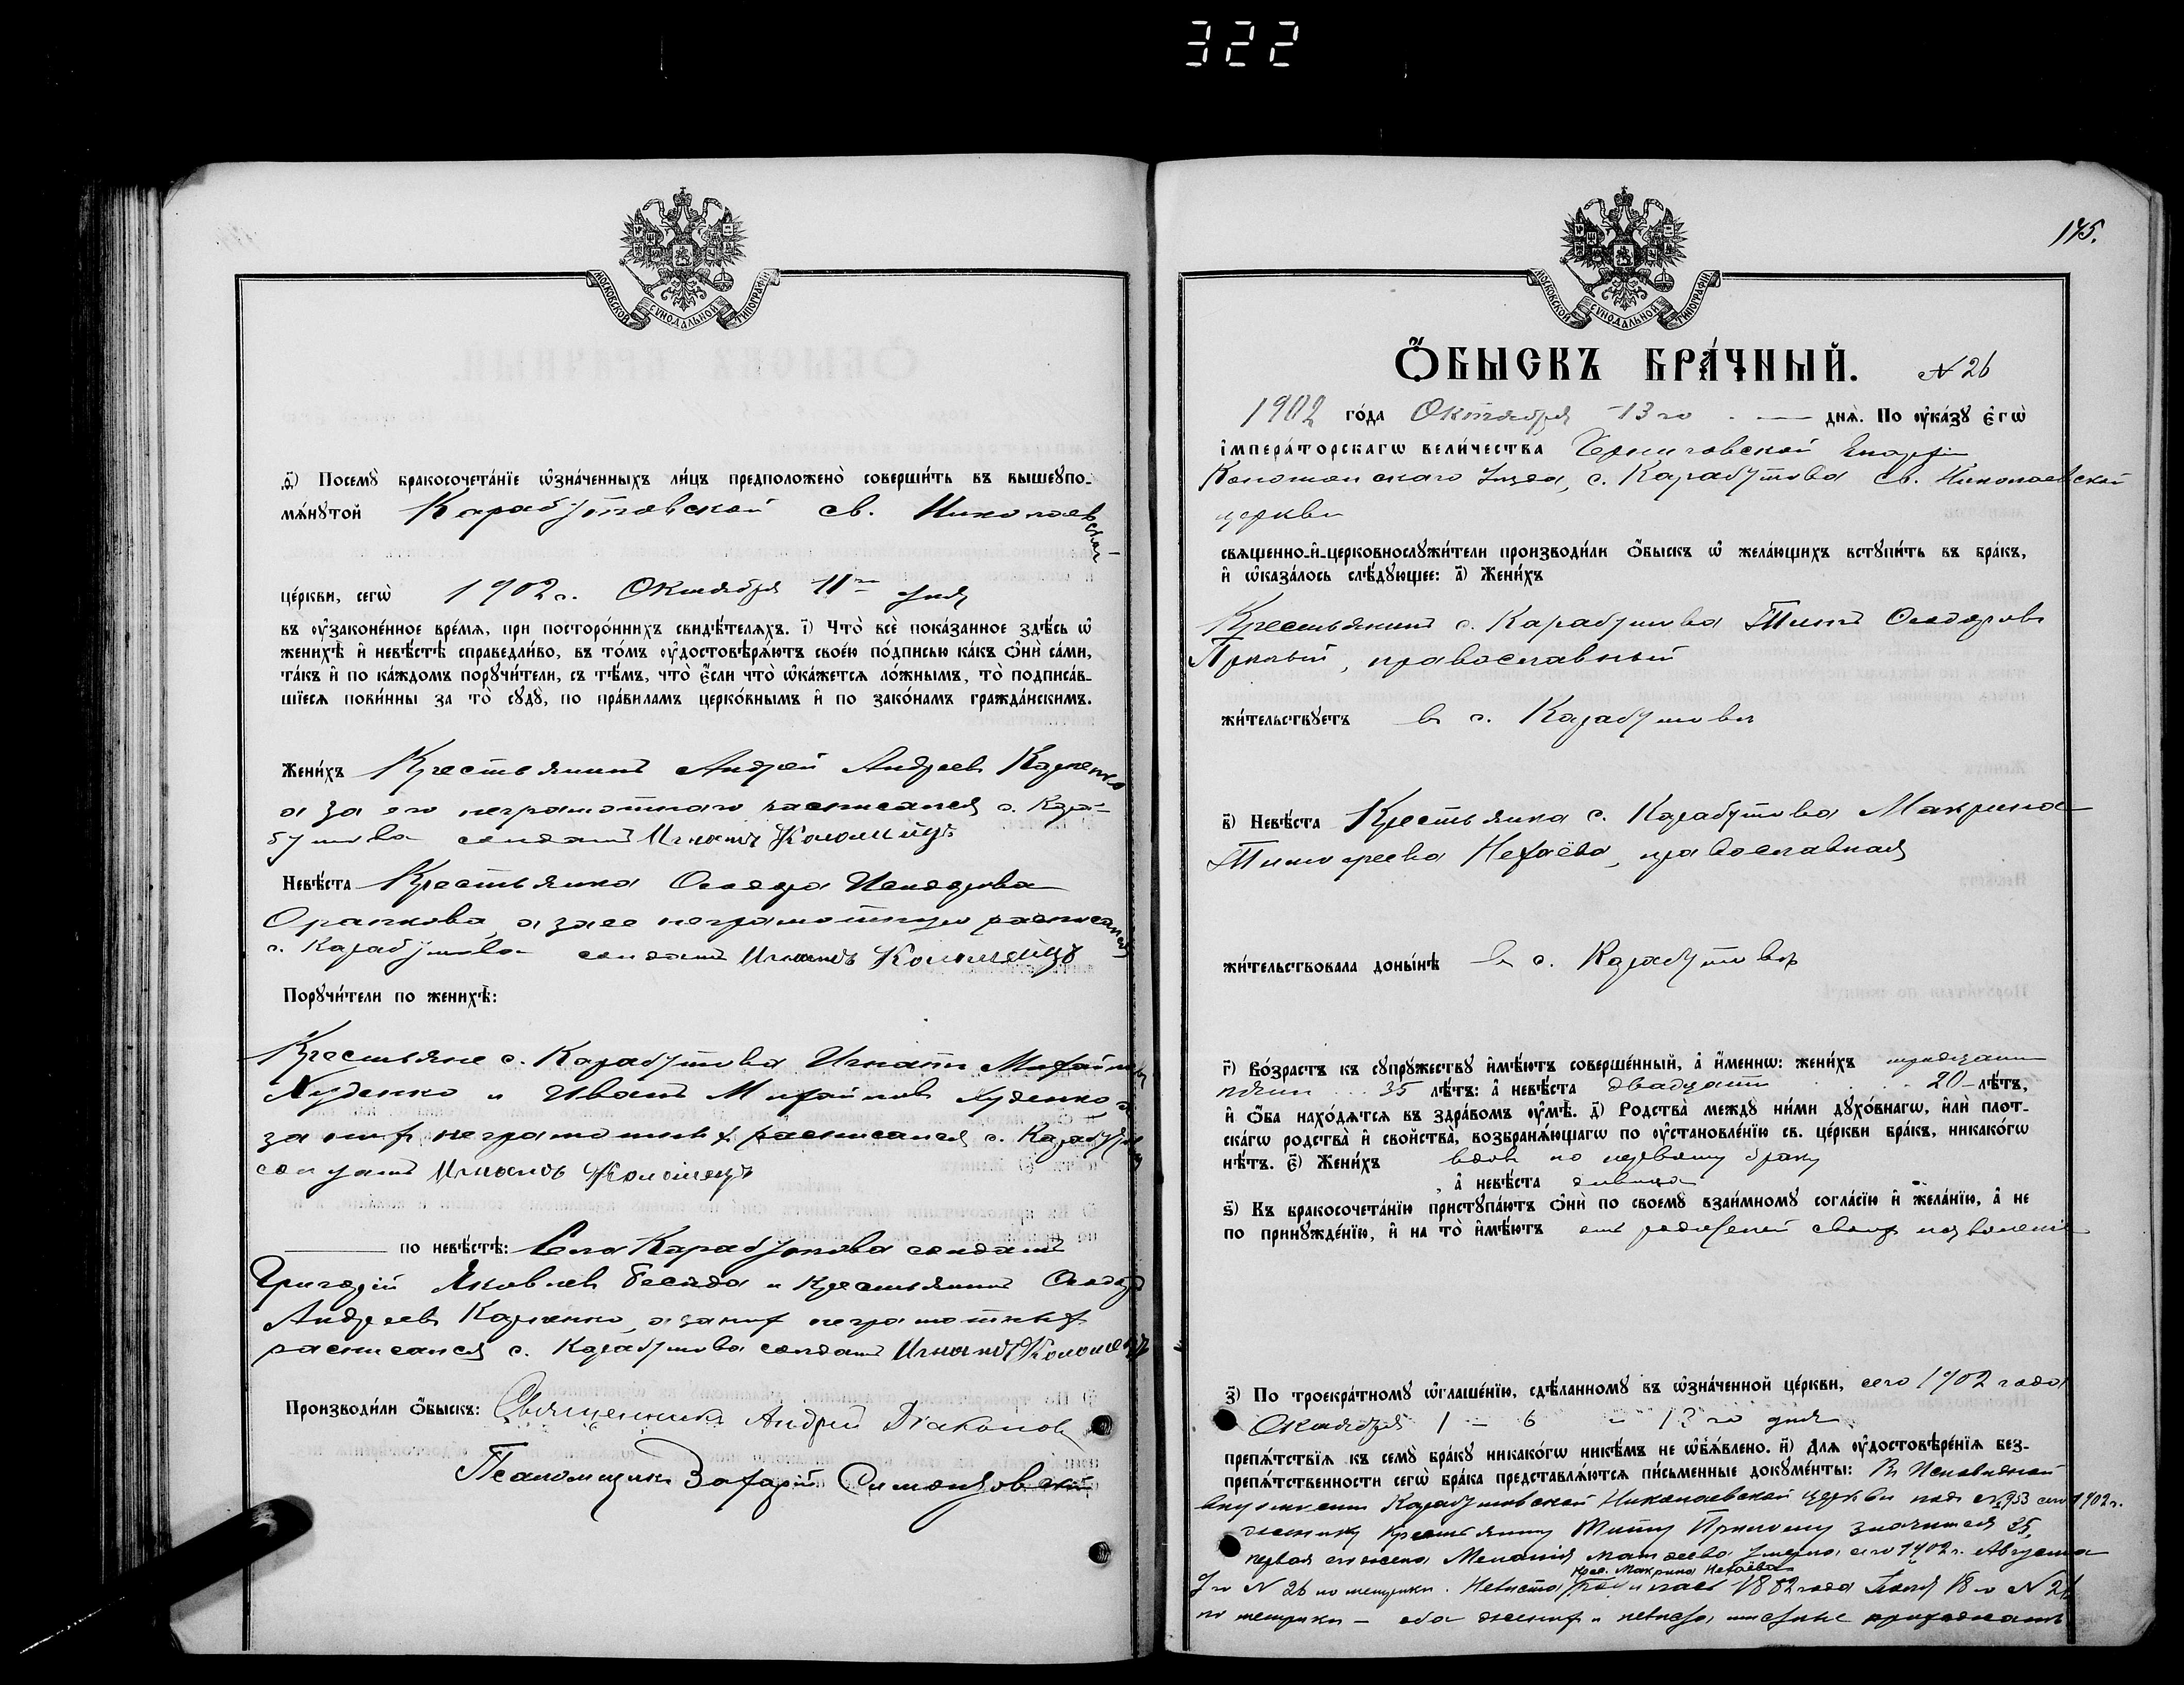 322
МОСКОВСКОЙ СУНОДАЛЬНОЙ ТИПОГРАФІИ
д҃) Посемꙋ̀ бракосочета́нїе ѡ҆зна́ченныхъ ли́цъ предположено̀ соверши́ть въ вышеꙋпо-
мѧ́нꙋтой Карабутовской св. Николаевской
це́ркви, сегѡ̀ 1902 г. Октября 11го дня
въ ᲂу҆законе́нное вре́мѧ, при посторо́ннихъ свидѣ́телѧхъ. і҃) Что̀ всѐ пока́занное здѣ́сь ѡ҆
женихѣ̀ и҆ невѣ́стѣ справедли́во, въ то́мъ ᲂу҆достовѣрѧ́ютъ свое́ю по́дписью ка́къ ѻ҆нѝ са́ми,
та́къ и҆ по ка́ждомъ порꙋчи́тели, съ тѣ́мъ, что̀ є҆́сли что̀ ѡ҆ка́жетсѧ ло́жнымъ, то̀ подписа́в-
шїесѧ пови́нны за то̀ сꙋдꙋ̀, по пра́виламъ церко́внымъ и҆ по зако́намъ гражда́нскимъ.
Жени́хъ Крестьянинъ Андрей Андреевъ Карпенко
а за его неграмотнаго расписался с. Кара-
бутова солдатъ Игнатъ Коломіецъ
Невѣ́ста Крестьянка Исидорова
а за ее неграмотную расписался
с. Карабутова солдатъ Игнатъ Коломіецъ
Порꙋчи́тели по женихѣ̀:
Крестьяне с. Карабутова Игнатъ Михайловъ
Худенко и Иванъ Михайловъ Худенко, а
за нихъ неграмотныхъ расписался с. Карабутова
солдатъ Игнатъ Коломіецъ
по невѣ́стѣ: Села Карабутова солдатъ
Григорій Яковлевъ Бесѣда и крестьянинъ Ѳеодоръ
Андреевъ Карпенко, а за нихъ неграмотныхъ
расписался с. Карабутова солдатъ Игнатъ Коломіецъ
Производи́ли ѻ҆́быскъ: Священникъ Андрей Діаконовъ
Псаломщикъ Захарій
145.
МОСКОВСКОЙ СУНОДАЛЬНОЙ ТИПОГРАФІИ
Ѻ҆́БЫСКЪ БРА́ЧНЫЙ. N 26
1902 го́да Октября 13го днѧ̀. По ᲂу҆ка́зꙋ є҆гѡ̀
і҆мпера́торскагѡ вели́чества Черниговской Епархіи
Конотопскаго Уѣзда, с. Карабутова Св. Николаевской
церкви
свѧще́нно-и҆-церковнослꙋжи́тели производи́ли ѻ҆́быскъ ѡ҆ жела́ющихъ встꙋпи́ть въ бра́къ,
и҆ ѡ҆каза́лось слѣ́дꙋющее: а҃) Жени́хъ
Крестьянинъ с. Карабутова Титъ Ѳеодоровъ
православный
жи́тельствꙋетъ въ с. Карабутовѣ
в҃) Невѣ́ста Крестьянка с. Карабутова Макрина
Тимофеева Нехаёва, православная
жи́тельствовала доны́нѣ въ с. Карабутовѣ
г҃) Во́зрастъ къ сꙋпрꙋ́жествꙋ и҆мѣ́ютъ соверше́нный, а҆ и҆́меннѡ: жени́хъ тридцати
пяти 35 лѣ́тъ: а҆ невѣ́ста двадцати 20 лѣ́тъ,
и҆ ѻ҆́ба нахо́дѧтсѧ въ здра́вомъ ᲂу҆мѣ̀. д҃) Родства̀ междꙋ̀ ни́ми дꙋхо́внагѡ, и҆лѝ плот-
ска́гѡ родства̀ и҆ свойства̀, возбранѧ́ющагѡ по ᲂу҆становле́нїю св. це́ркви бра́къ, никако́гѡ
нѣ́тъ. є҃) Жени́хъ вдовъ по первому браку
, а҆ невѣ́ста дѣвица
ѕ҃) Къ бракосочета́нїю пристꙋпа́ютъ ѻ҆нѝ по своемꙋ̀ взаи́мномꙋ согла́сїю и҆ жела́нїю, а҆ не
по принꙋжде́нїю, и҆ на то̀ и҆мѣ́ютъ отъ родителей своихъ позволеніе
з҃) По троекра́тномꙋ ѡ҆глаше́нїю, сдѣ́ланномꙋ въ ѡ҆зна́ченной це́ркви, сего 1902 года
Октября 1 – 6 – 13го дня
препѧ́тствїѧ къ семꙋ̀ бра́кꙋ никако́гѡ никѣ́мъ не ѡ҆б̾ѧ́влено. и҃) Длѧ ᲂу҆достовѣре́нїѧ без-
препѧ́тственности сегѡ̀ бра́ка представлѧ́ютсѧ пи́сьменные докꙋме́нты: Въ Исповѣдной
Карабутовской Николаевской церкви подъ №953 сего 1902 г.
жениху крестьянину Титу значится 35,
первая его жена Меланія умерла сего 1902 г. Августа
крес. Макрина Нехаёва
N 26 по метрики. Невѣста родилась 1882 года Іюля 18го N 26
по метрики – оба женихъ и невѣста